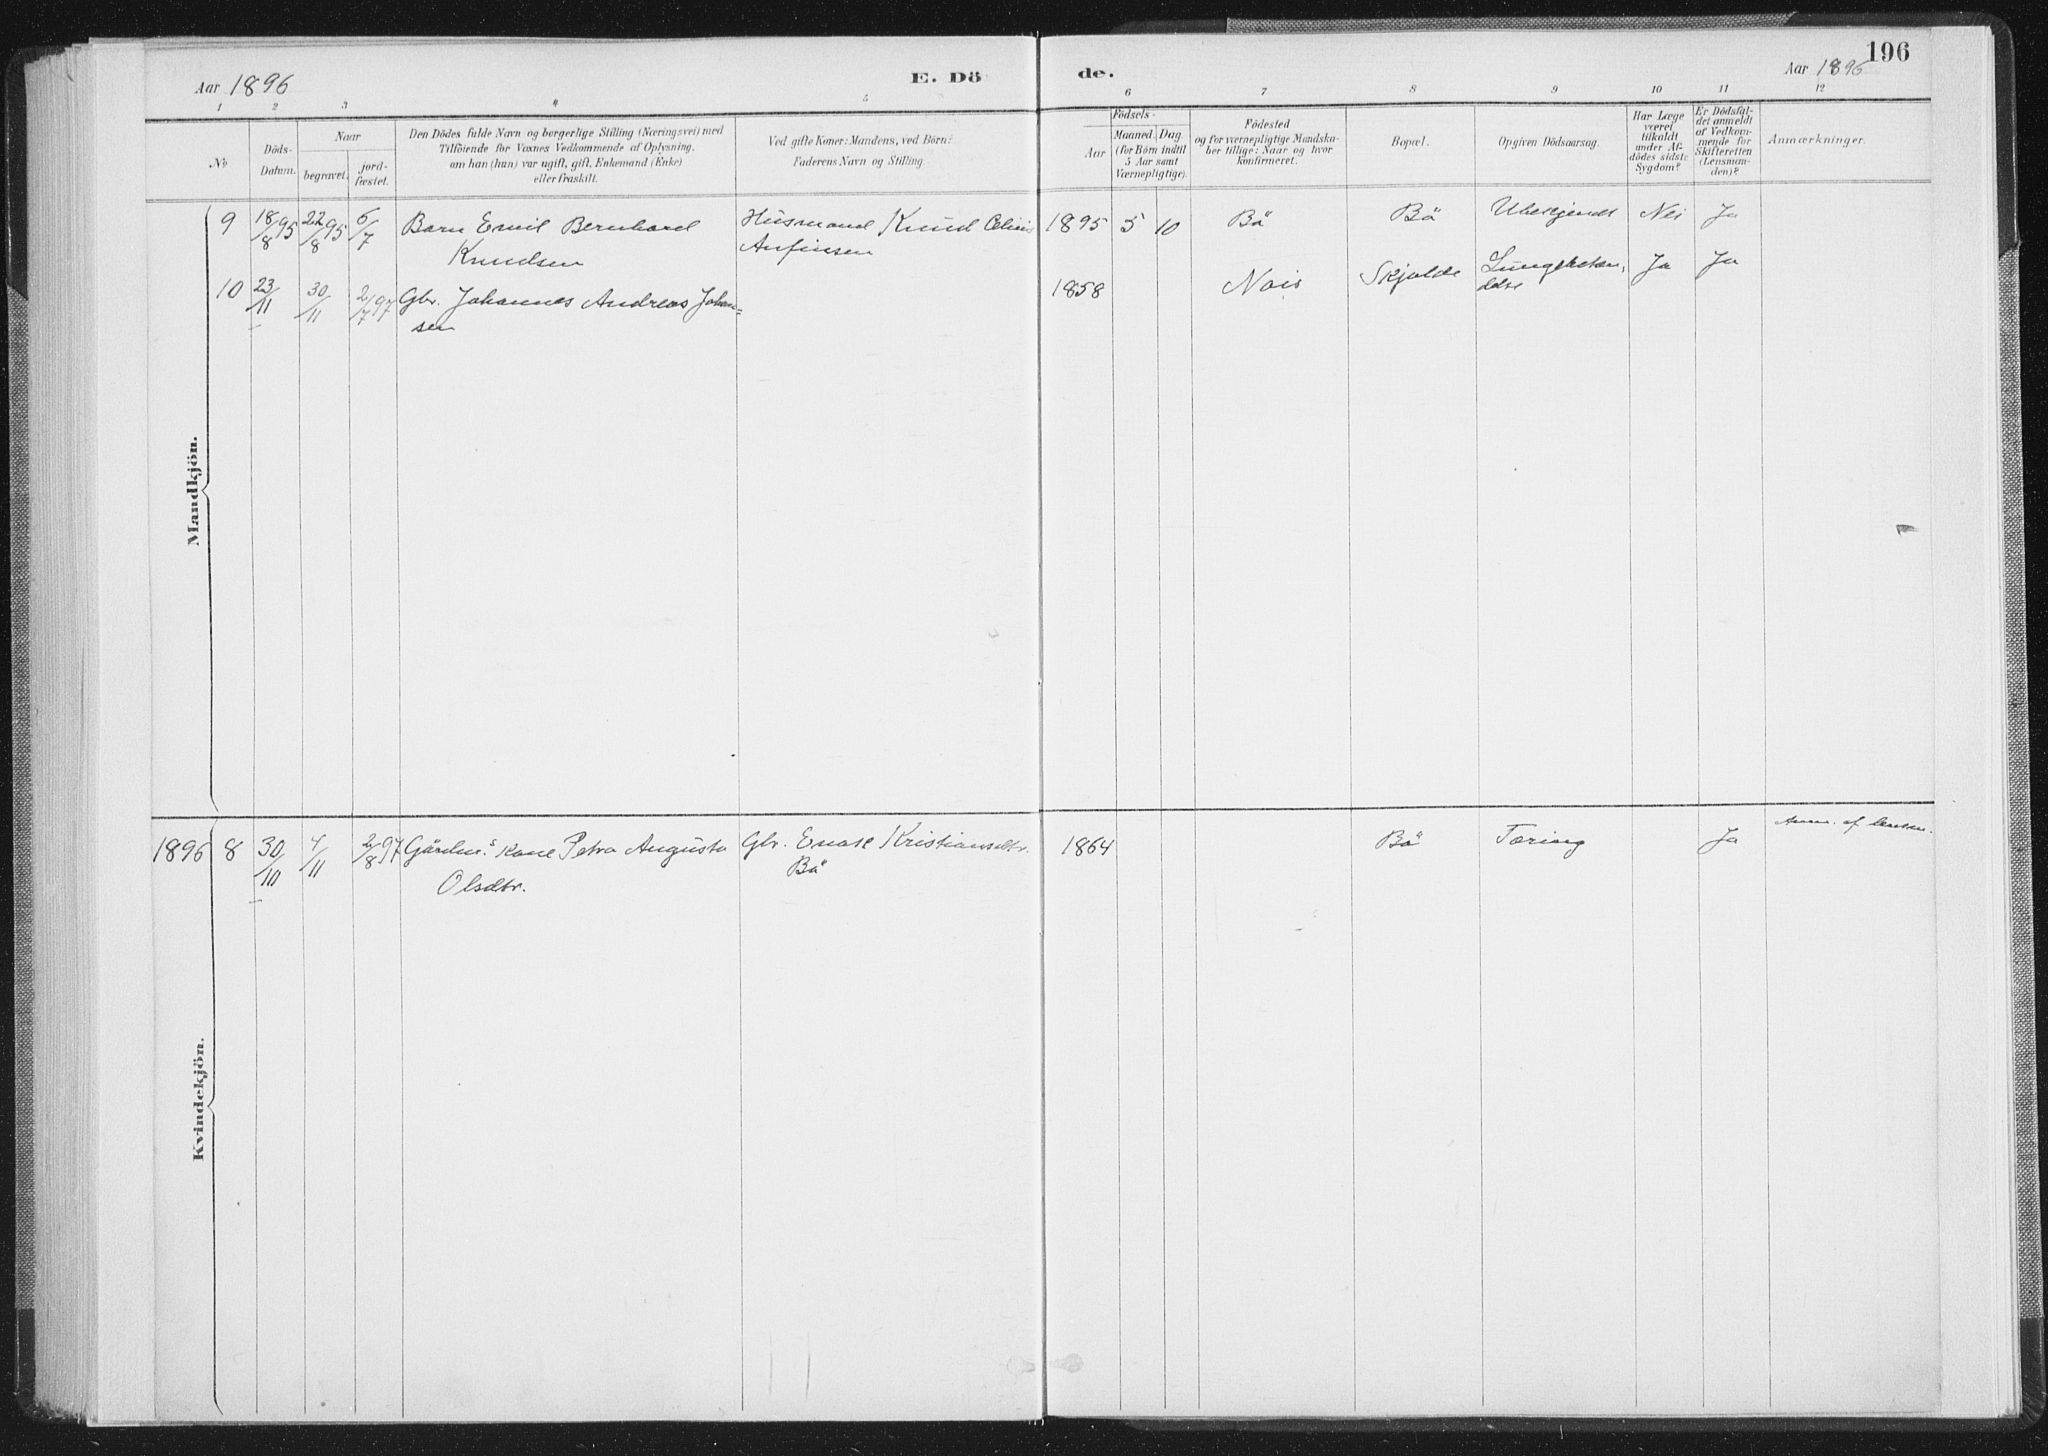 196
Aar 1896
E. Dö
de.
Aar 1896
1 2 3 4 5 6 7 8 9 10 11 12
No
Döds-
Datum.
Naar
begravet.
jord-
fæstet.
Den Dödes fulde Navn og borgerlige Stilling (Næringsvei) med
Tilföiende for Voxnes Vedkommende af Oplysning,
om han (hun) var ugift, gift, Enkemand (Enke)
eller fraskilt.
Ved gifte Koner: Mandens, ved Börn:
Faderens Navn og Stilling.
Födsels-
Aar
Maaned. Dag
(for Börn indtil
5 Aar samt
Værnepligtige).
Födested
og for værnepligtige Mandska-
ber tillige: Naar og hvor
konfirmeret.
Bopæl.
Opgiven Dödsaarsag.
Har Læge
været
tilkaldt
under Af-
dödes sidste
Sygdom?
Er Dödsfal-
det anmeldt
af Vedkom-
mende for
Skifteretten
(Lensman-
den)?
Anmærkninger.
Mandkjön.
9 18/8 95 22/8 95 6/7 Barn Emil Bernhard Husmand Knud 1895 5 10 Bö Bö Ubekjendt Nei Ja
Knudsen Anfinsen
10 23/11 30/11 2/7 97 Gbr. Johannes Andreas Johan= 1858 Nois Skjolde Lungebeten, Ja Ja
sen delse
1896 8 30/10 4/11 2/8 97 Gårdm.s Kone Petra Augusta Gbr. Enok Kristiansdtr. 1864 Bö Tæring Ja Anm. af lensm.
Olsdtr. Bö
Kvindekjön.